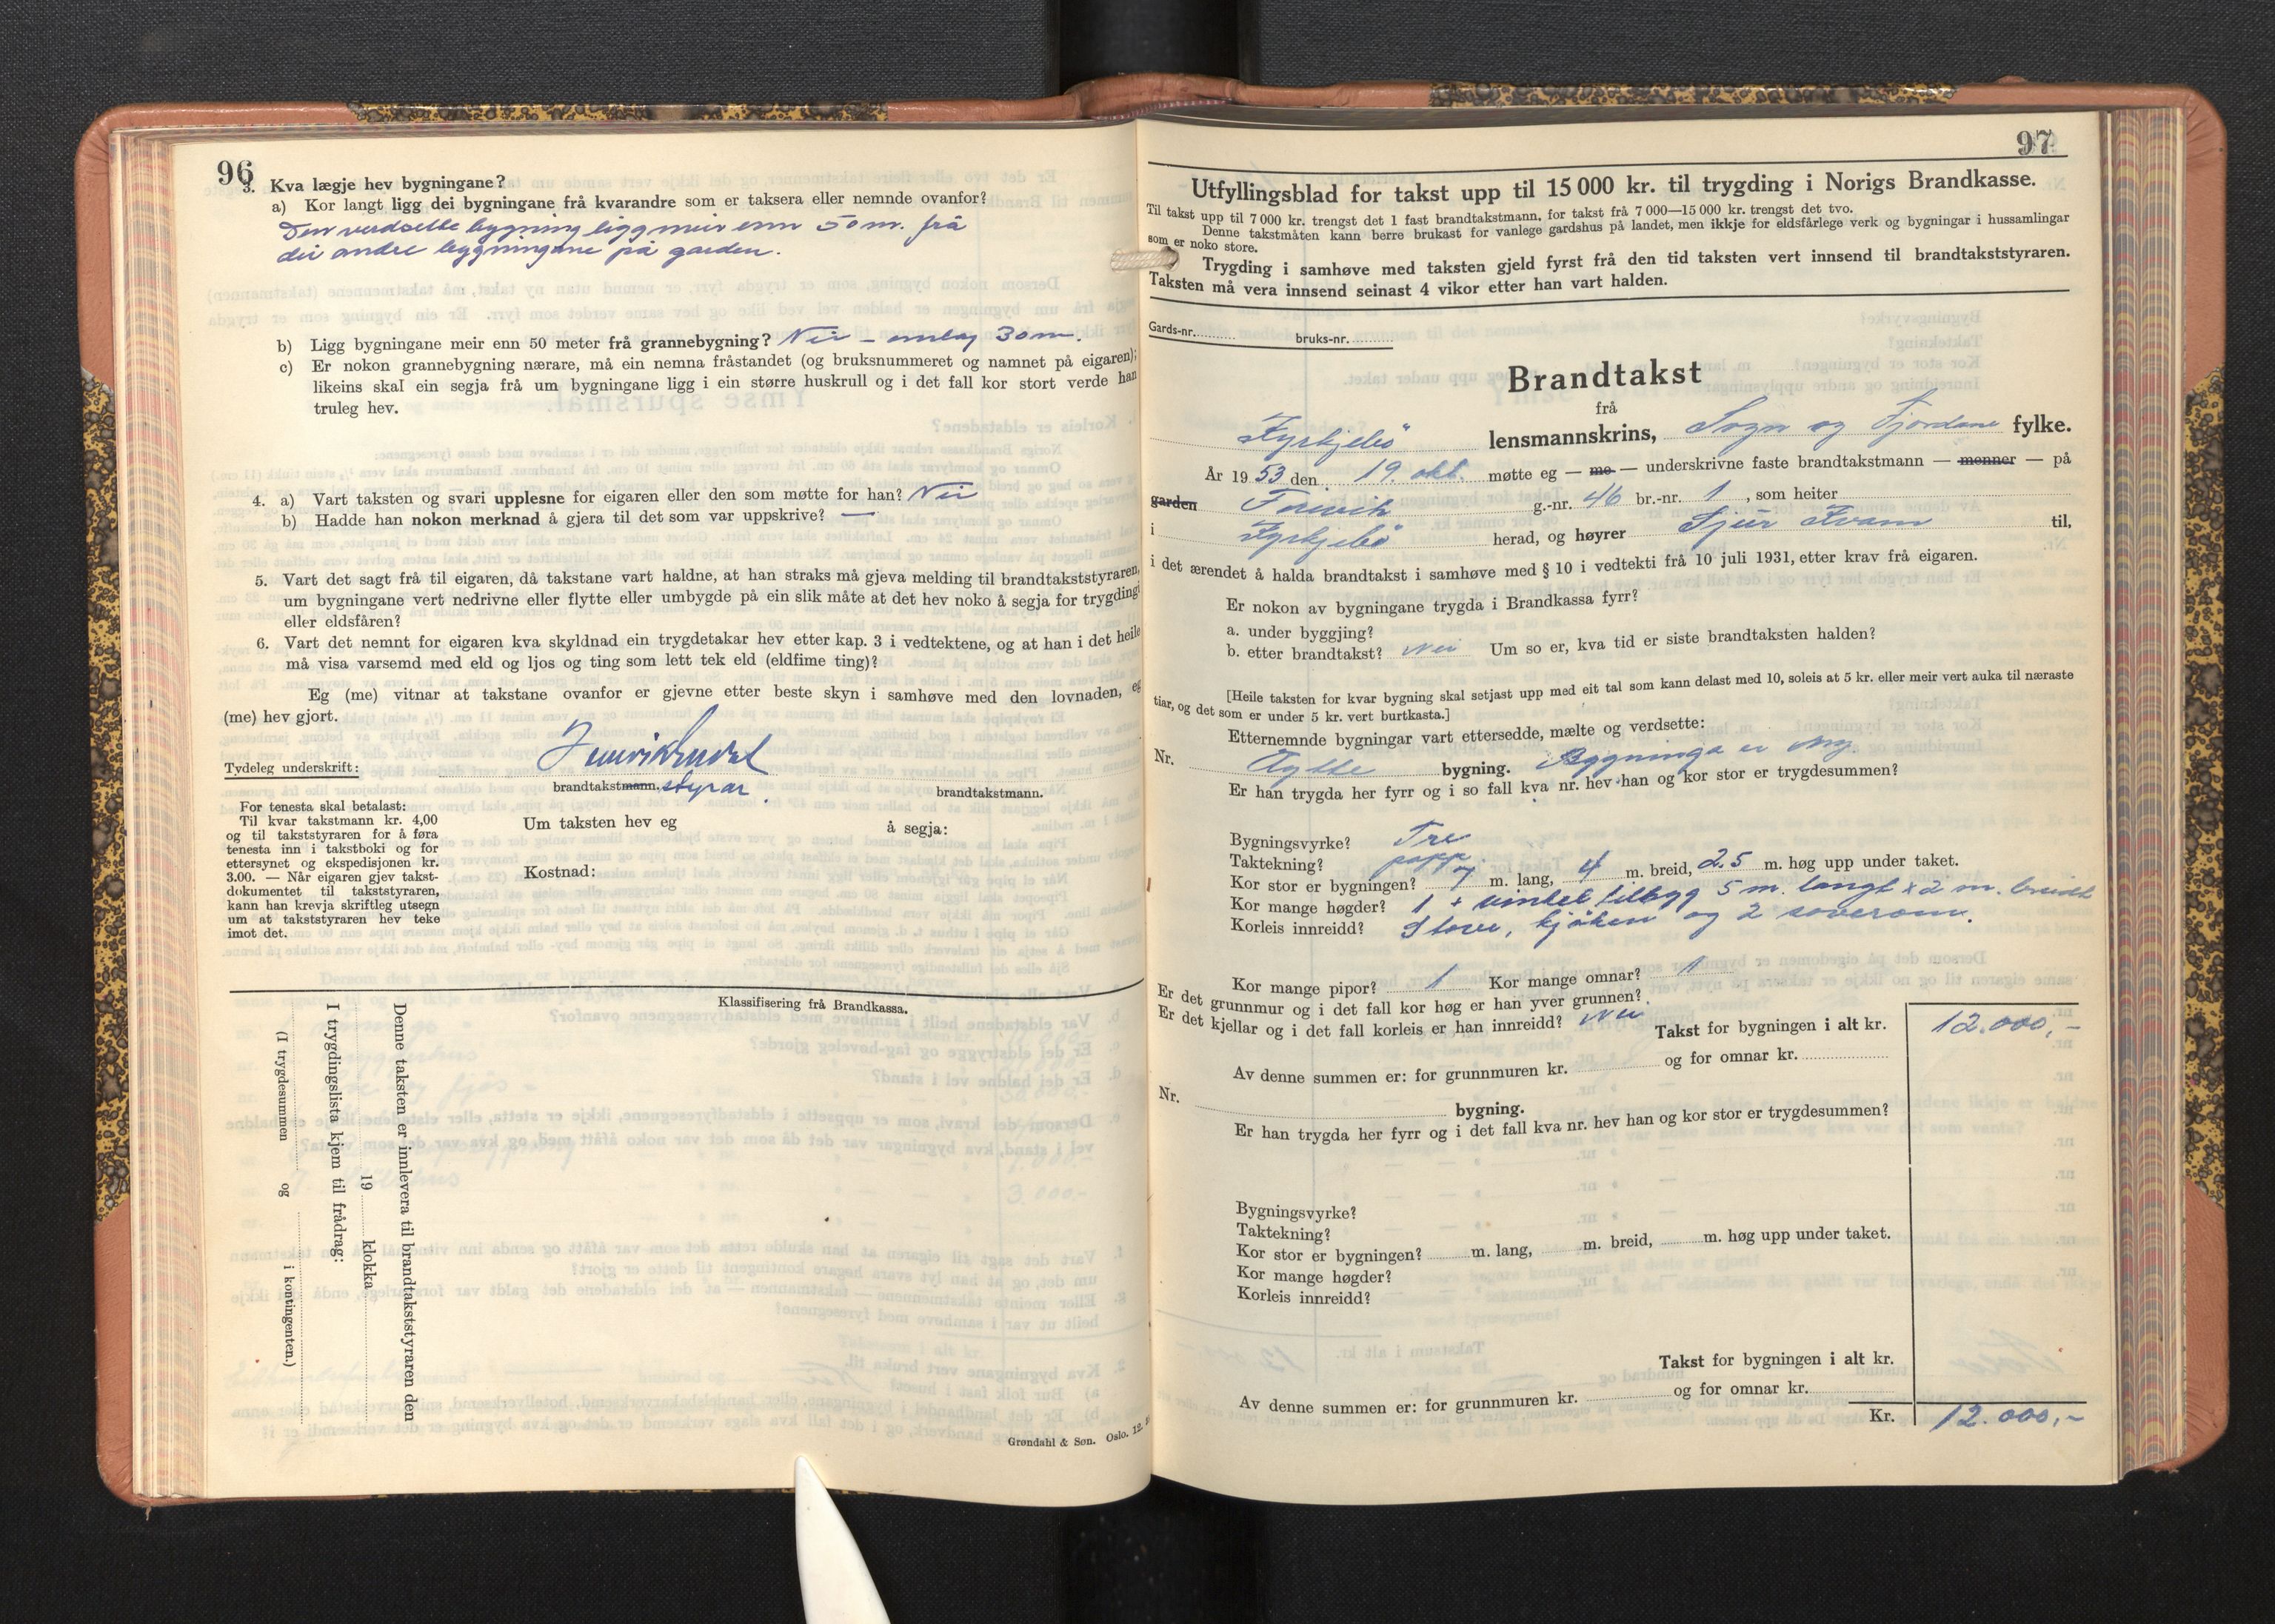 96
3. Kva lægje hev bygningane?
a) Kor langt ligg dei bygningane frå kvarandre som er taksera eller nemnde ovanfor?
Den verdsette bygning ligg meir enn 50 m. frå
dei andre bygningane på garden.
b) Ligg bygningane meir enn 50 meter frå grannebygning? Nei – omlag 30 m.
c) Er nokon grannebygning nærare, må ein nemna fråstandet (og bruksnummeret og namnet på eigaren);
likeins skal ein segja frå um bygningane ligg i ein større huskrull og i det fall kor stort verde han
truleg hev.
4. a) Vart taksten og svari upplesne for eigaren eller den som møtte for han? Nei
b) Hadde han nokon merknad å gjera til det som var uppskrive? —
5. Vart det sagt frå til eigaren, då takstane vart haldne, at han straks må gjeva melding til brandtakststyraren,
um bygningane vert nedrivne eller flytte eller umbygde på ein slik måte at det hev noko å segja for trygdingi
eller eldsfåren?
6. Vart det nemnt for eigaren kva skyldnad ein trygdetakar hev etter kap. 3 i vedtektene, og at han i det heile
må visa varsemd med eld og ljos og ting som lett tek eld (eldfime ting)?
Eg (me) vitnar at takstane ovanfor er gjevne etter beste skyn i samhøve med den lovnaden, eg
(me) hev gjort.
Tydeleg underskrift:
brandtakstmann. styrar.
brandtakstmann.
For tenesta skal betalast:
Til kvar takstmann kr. 4,00
og til takststyraren for å føra
tenesta inn i takstboki og for
ettersynet og ekspedisjonen kr.
3.00. — Når eigaren gjev takst-
dokumentet til takststyraren,
kann han krevja skriftleg utsegn
um at takststyraren hev teke
imot det.
Um taksten hev eg å segja:
Kostnad:
Klassifisering frå Brandkassa.
Denne taksten er innlevera til brandtakststyraren den
19 klokka
I trygdingslista kjem til frådrag:
(I trygdesummen og i kontingenten.)
Grøndahl & Søn. Oslo. 12.
97
Utfyllingsblad for takst upp til 15 000 kr. til trygding i Norigs Brandkasse.
Til takst upp til 7 000 kr. trengst det 1 fast brandtakstmann, for takst frå 7 000—15 000 kr. trengst det tvo.
Denne takstmåten kann berre brukast for vanlege gardshus på landet, men ikkje for eldsfårlege verk og bygningar i hussamlingar
som er noko store.
Trygding i samhøve med taksten gjeld fyrst frå den tid taksten vert innsend til brandtakststyraren.
Taksten må vera innsend seinast 4 vikor etter han vart halden.
Gards-nr. bruks-nr.
Brandtakst
frå
Kyrkjebø lensmannskrins, Sogn og Fjordane fylke.
År 1953 den 19. okt. møtte eg — me — underskrivne faste brandtakstmann — menner — på
garden g.-nr. 46 br.-nr. 1, som heiter
i Kyrkjebø herad, og høyrer Sjur Kvam til,
i det ærendet å halda brandtakst i samhøve med § 10 i vedtekti frå 10 juli 1931, etter krav frå eigaren.
Er nokon av bygningane trygda i Brandkassa fyrr?
a. under byggjing?
b. etter brandtakst? Nei Um so er, kva tid er siste brandtaksten halden?
[Heile taksten for kvar bygning skal setjast upp med eit tal som kann delast med 10, soleis at 5 kr. eller meir vert auka til næraste
tiar, og det som er under 5 kr. vert burtkasta.]
Etternemnde bygningar vart ettersedde, mælte og verdsette:
Nr. Hytte bygning. Bygninga er ny.
Er han trygda her fyrr og i so fall kva nr. hev han og kor stor er trygdesummen?
Bygningsvyrke? Tre
Taktekning? papp
Kor stor er bygningen? 7 m. lang, 4 m. breid, 2.5 m. høg upp under taket.
Kor mange høgder? 1 + vinkel tilbygg 5 m. langt x 2 m. breidt
Korleis innreidd? Stove, kjøken og 2 soverom.
Kor mange pipor? 1 Kor mange omnar? 1
Er det grunnmur og i det fall kor høg er han yver grunnen?
Er det kjellar og i det fall korleis er han innreidd? Nei
Takst for bygningen i alt kr. 12.000,-
Av denne summen er: for grunnmuren kr. og for omnar kr.
Nr. bygning.
Er han trygda her fyrr og i det fall kva nr. hev han og kor stor er trygdesummen?
Bygningsvyrke?
Taktekning?
Kor stor er bygningen? m. lang, m. breid, m. høg upp under taket.
Kor mange høgder?
Korleis innreidd?
Takst for bygningen i alt kr.
Av denne summen er: for grunnmuren kr. og for omnar kr.
Kr. 12.000,-